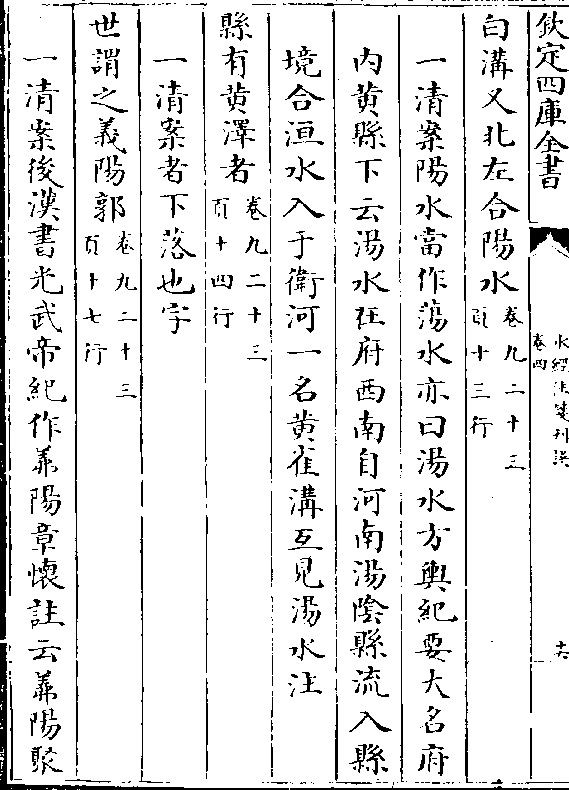 欽定四庫全書
水經注箋刊誤
卷四
十六
白溝又北左合陽水卷九二十三頁十三行
一清案陽水當作蕩水亦曰湯水方輿紀要大名府
内黄縣下云湯水在府西南自河南湯隂縣流入縣
境合洹水入于衛河一名黄雀溝互見湯水注
縣有黄澤者卷九二十三頁十四行
一清案者下落也字
世謂之義陽郭卷九二十三頁十七行
一清案後漢書光武帝紀作羛陽章懷註云羛陽聚